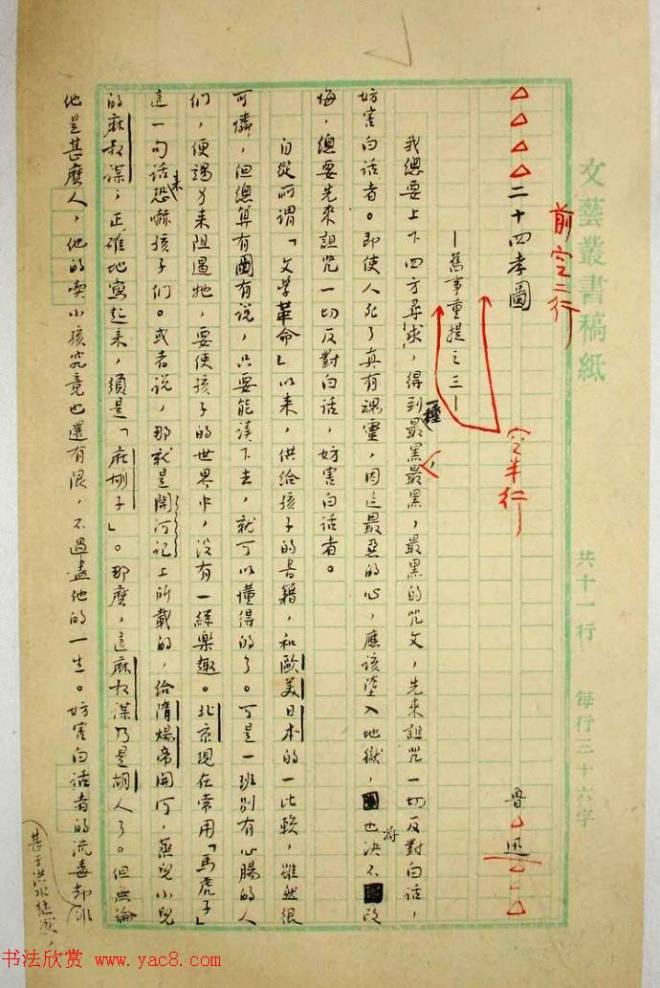 文藝叢書稿紙
共十一行 每行三十六字
前空二行
二十四孝圖
魯迅
—舊事重提之三—
空半行
我總要上下四方尋求,得到一種最黑最黑,最黑的咒文,先來詛咒一切反對白話,
妨害白話者。即使人死了真有魂靈,因這最惡的心,應該墮入地獄,也將決不改
悔,總要先來詛咒一切反對白話,妨害白話者。
自從所謂「文學革命」以來,供給孩子的書籍,和歐美日本的一比較,雖然很
可憐,但總算有圖有說,只要能讀下去,就可以懂得的了。可是一班別有心腸的人
們,便竭力來阻遏牠,要使孩子的世界中,沒有一絲樂趣。北京現在常用「馬虎子」
這一句話來恐嚇孩子們。或者說,那就是開河記上所載的,給隋煬帝開河,蒸兒小兒
的麻叔謀;正確地寫起來,須是「麻胡子」。那麼,這麻叔謀乃是胡人了。但無論
他是甚麼人,他的喫小孩究竟也還有限,不過盡他的一生。妨害白話者的流毒却
甚于洪水猛獸,
书法欣赏 www.yac8.com